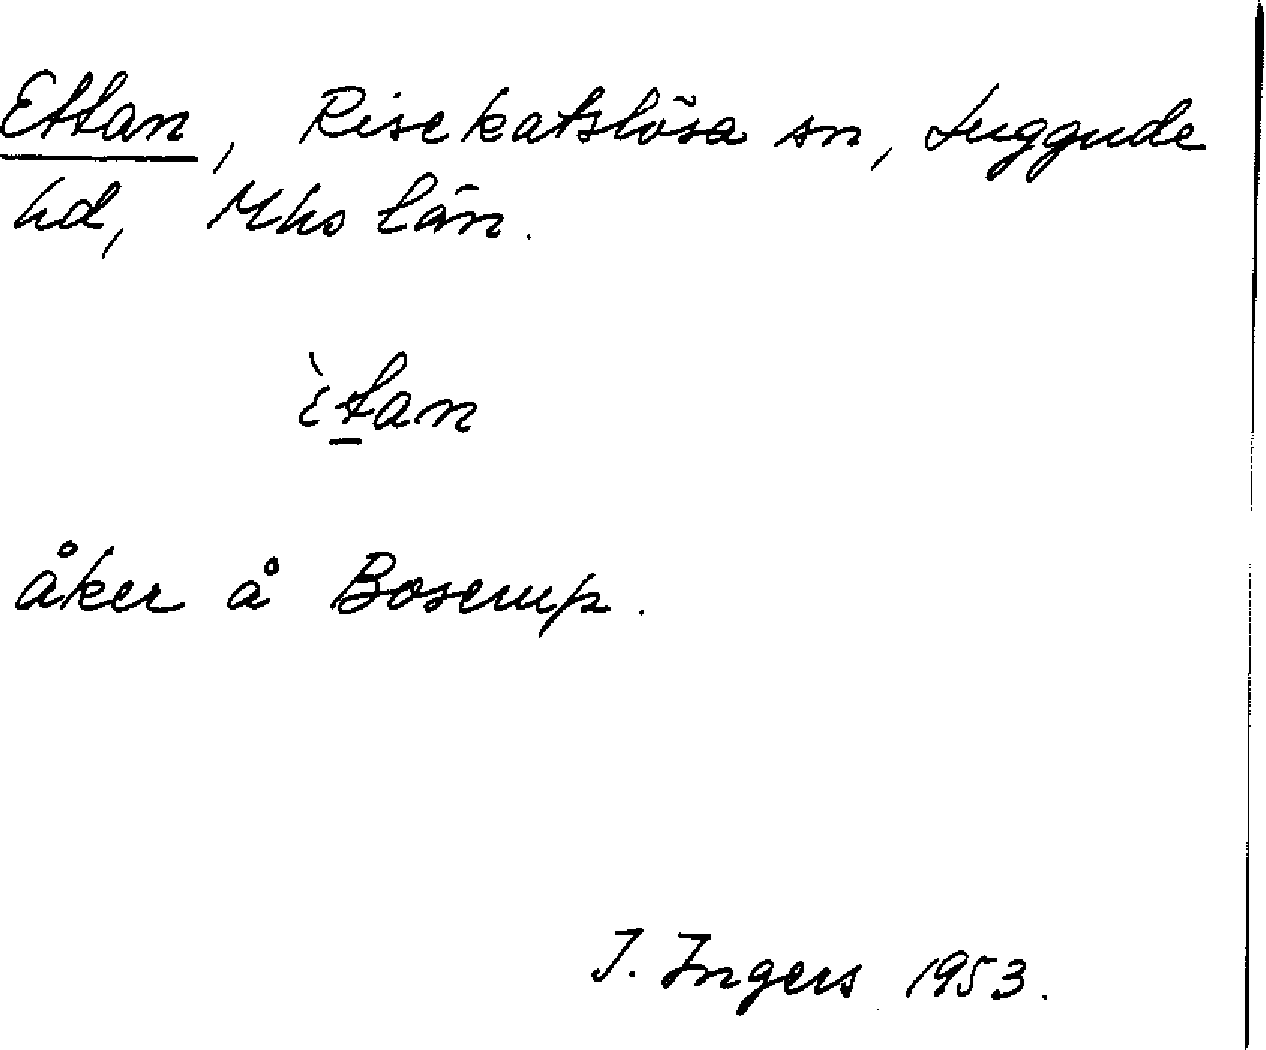 Ettan, Risekatslösa sn, Luggude
hd, Mhs län.
ὲtan
åker å Boserup.
I. Ingers 1953.